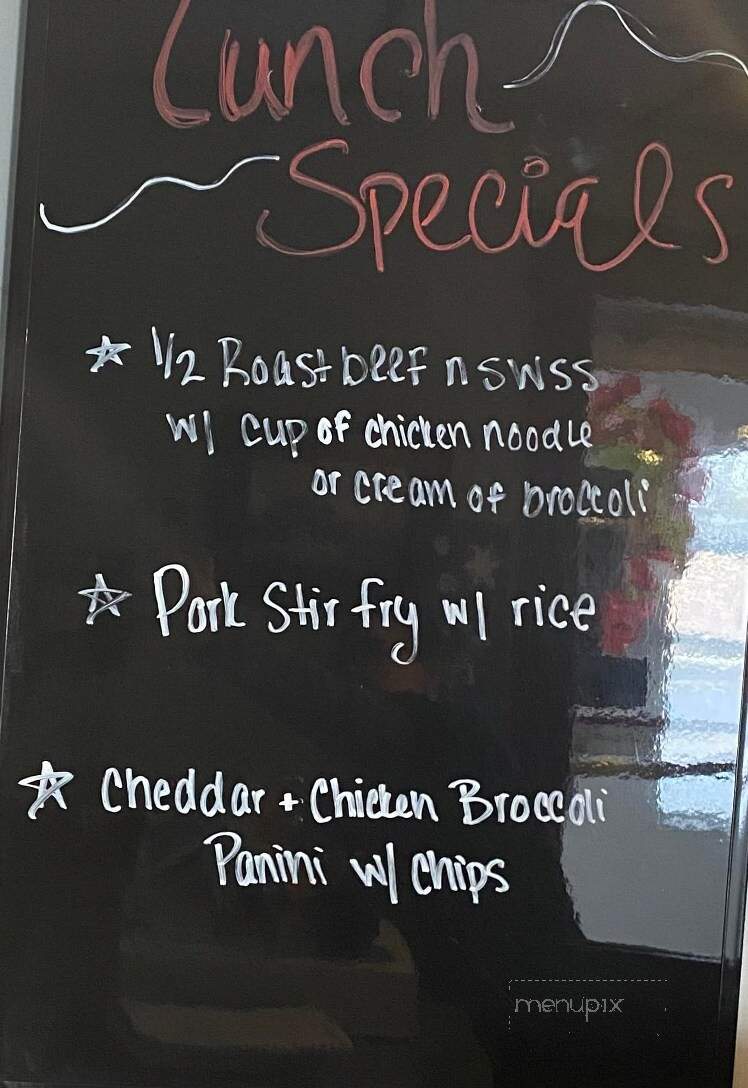 Lunch
Specials
1/2 Roast beef n swss
w/ cup of chicken noodle
or cream of broccoli
Pork Stir fry w/ rice
Cheddar + Chicken Broccoli
Panini w/ chips
menupix